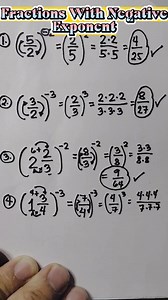 Fractions With Negative
Exponent
① (5/2)⁻² = (2/5)² = 2·2/5·5 = 4/25 ✓
② (3/2)⁻³ = (2/3)³ = 2·2·2/3·3·3 = 8/27 ✓
③ (2 2/3)⁻² = (8/3)⁻² = (3/8)² = 3·3/8·8
= 9/64 ✓
④ (1 3/4)⁻³ = (7/4)⁻³ = (4/7)³ = 4·4·4/7·7·7